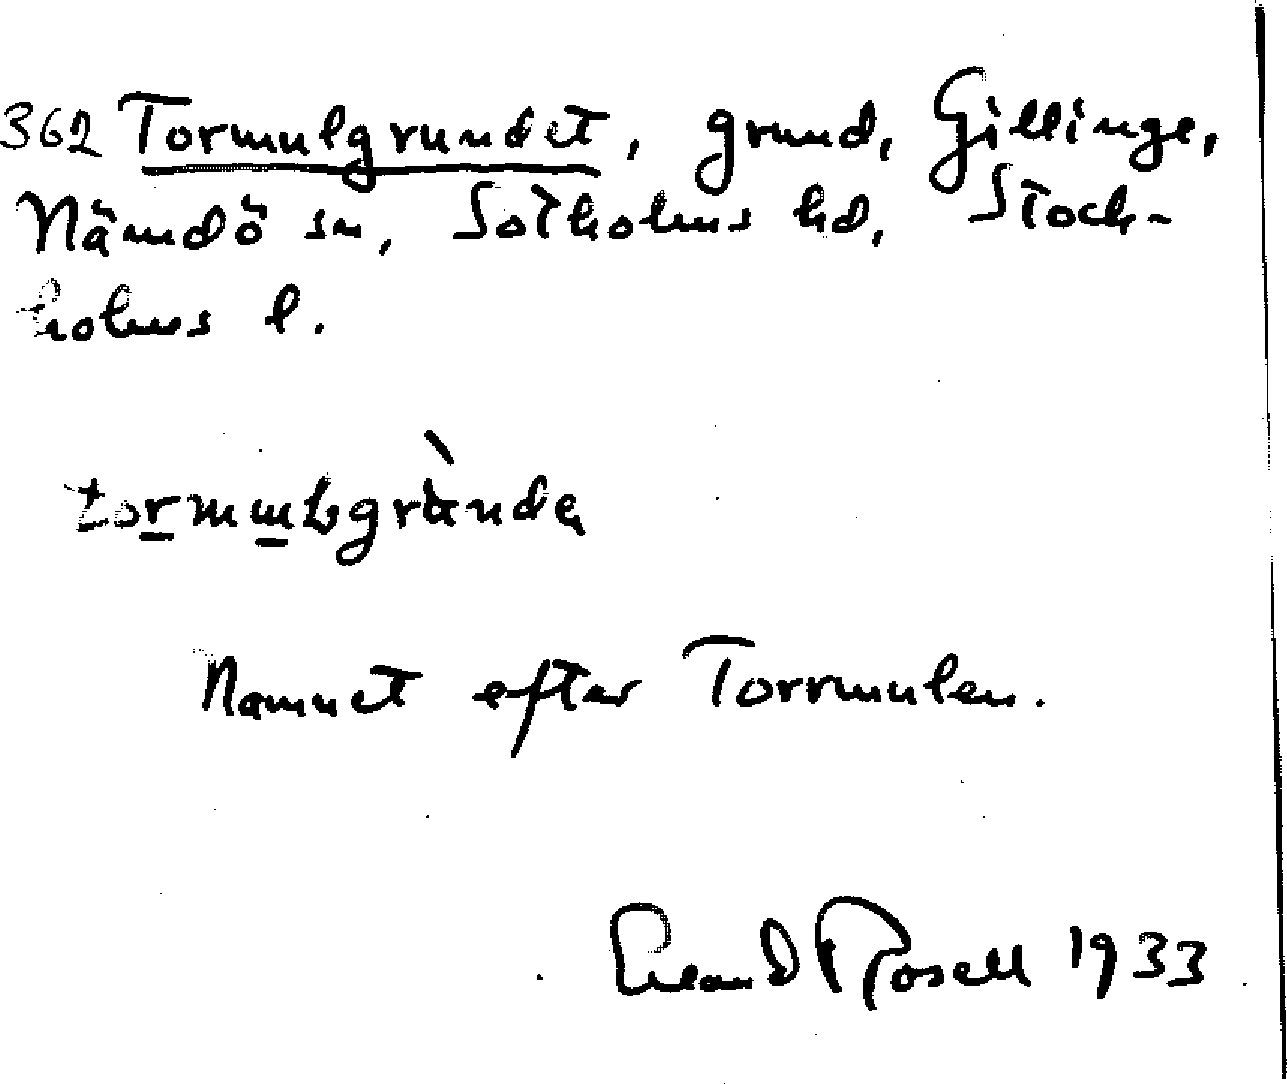 362 Tormulgrundet, grund, Gillinge,
Nämdö sn, Sotholms hd, Stock-
holms l.
Namnet efter Torrmulen.
Erland Rosell 1933